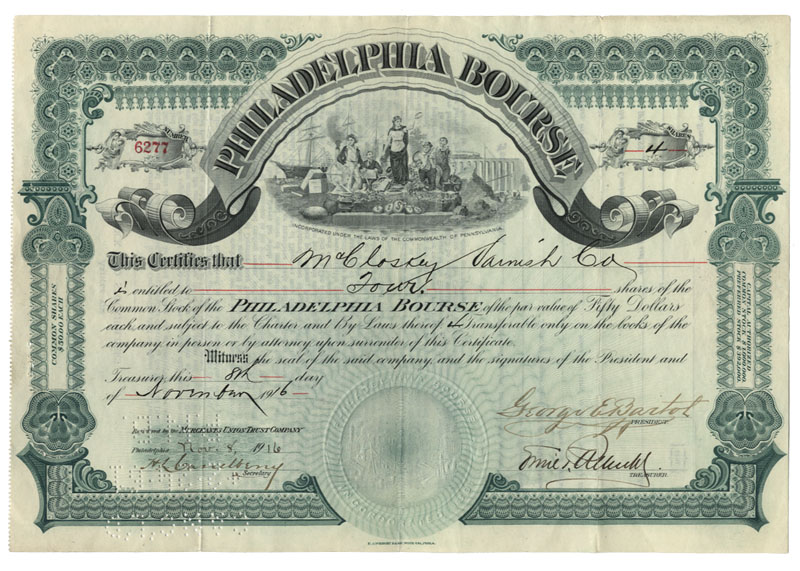 PHILADELPHIA BOURSE
NUMBER
6277
SHARES
4
INCORPORATED UNDER THE LAWS OF THE COMMONWEALTH OF PENNSYLVANIA
This Certifies that McCloskey Varnish Co
is entitled to Four. shares of the
Common Stock of the PHILADELPHIA BOURSE of the par value of Fifty Dollars
each, and subject to the Charter and By Laws thereof Transferable only on the books of the
company in person or by attorney upon surrender of this Certificate.
Witness the seal of the said company, and the signatures of the President and
Treasurer, this 8th day
of November 1916
COMMON SHARES
$50.00 EACH
CAPITAL AUTHORIZED
COMMON STOCK $1,000,000.
PREFERRED STOCK $
George E. Bartol
PRESIDENT
TREASURER
Registered by the MERCHANTS UNION TRUST COMPANY
Philadelphia Nov. 8, 1916
Secretary